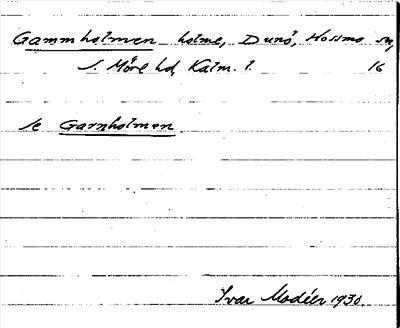 Gammholmen holme, Dunö, Hossmo sn,
S. Möre hd, Kalm. l. 16
Se Garnholmen
Ivar Modéer 1930.